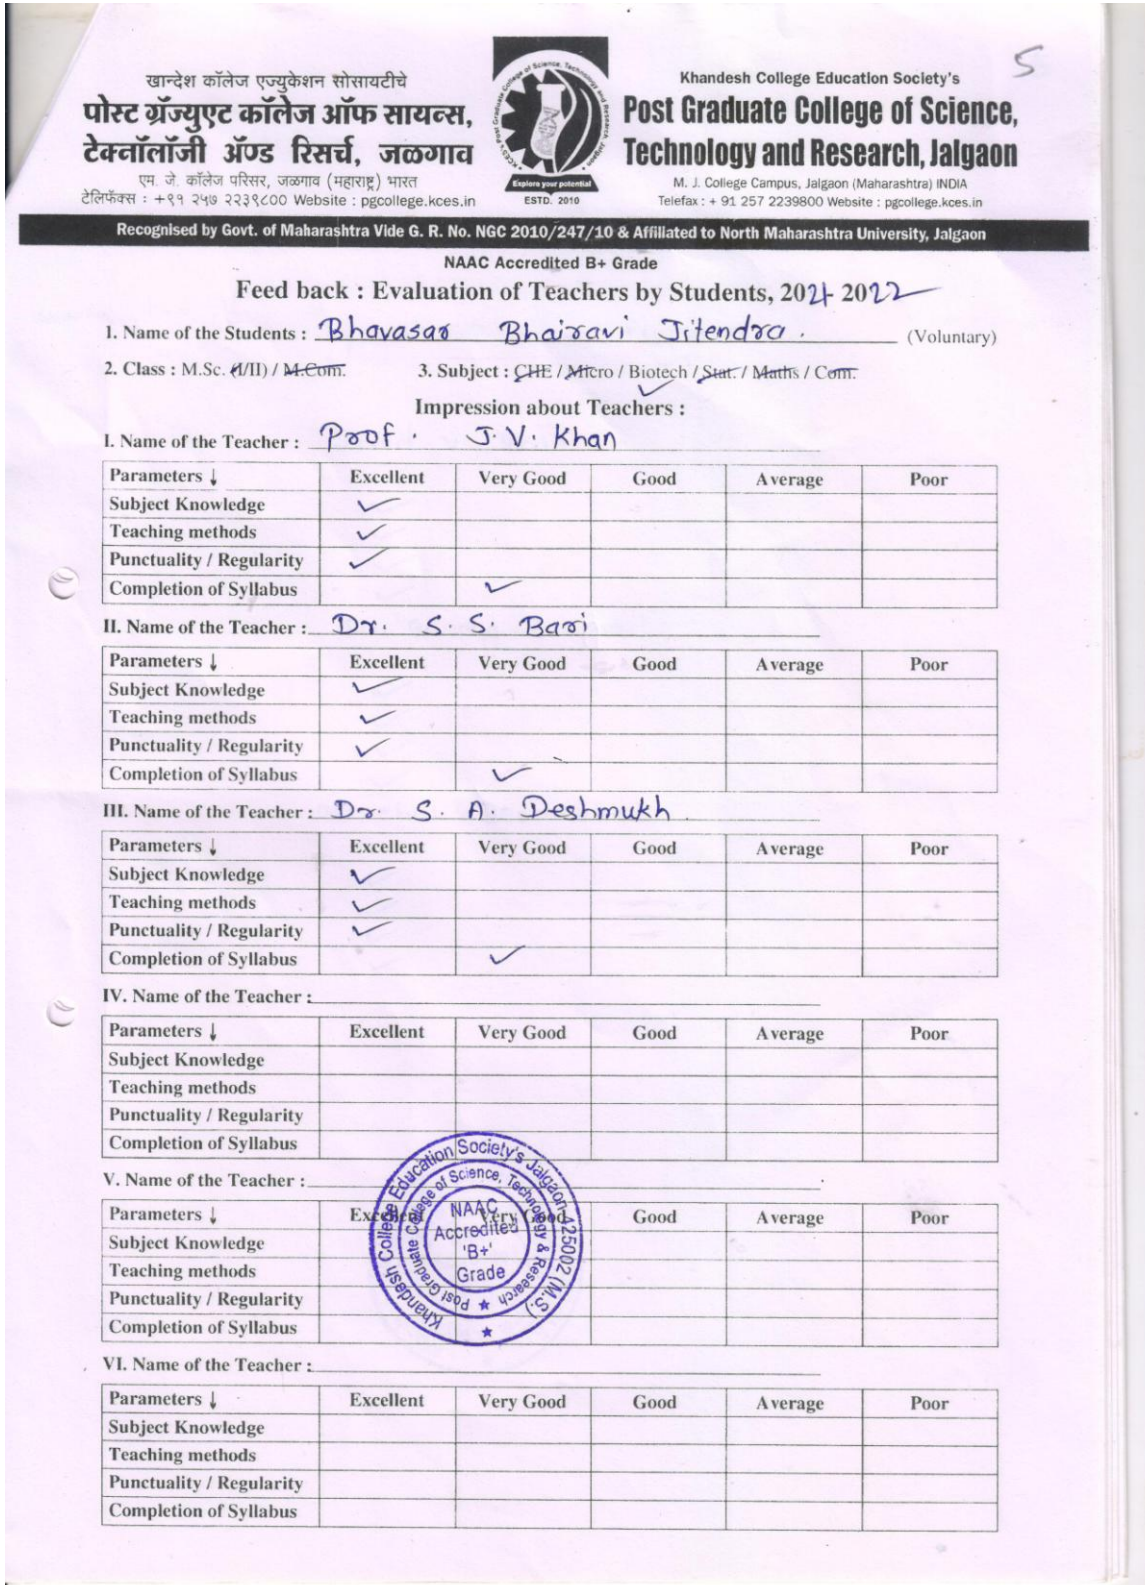 5
खान्देश कॉलेज एज्युकेशन सोसायटीचे
पोस्ट ग्रॅज्युएट कॉलेज ऑफ सायन्स,
टेक्नॉलॉजी ॲण्ड रिसर्च, जळगाव
एम. जे. कॉलेज परिसर, जळगाव (महाराष्ट्र) भारत
टेलिफॅक्स : +९१ २५७ २२३९८०० Website : pgcollege.kces.in
Explore your potential
ESTD. 2010
Khandesh College Education Society's
Post Graduate College of Science,
Technology and Research, Jalgaon
M. J. College Campus, Jalgaon (Maharashtra) INDIA
Telefax : + 91 257 2239800 Website : pgcollege.kces.in
Recognised by Govt. of Maharashtra Vide G. R. No. NGC 2010/247/10 & Affiliated to North Maharashtra University, Jalgaon
NAAC Accredited B+ Grade
Feed back : Evaluation of Teachers by Students, 2021-2022
1. Name of the Students : Bhavasar Bhairavi Jitendra. (Voluntary)
2. Class : M.Sc. (I/II) / M.Com. 3. Subject : CHE / Micro / Biotech / Stat. / Maths / Com.
Impression about Teachers :
I. Name of the Teacher : Prof. J.V. Khan
Parameters ↓ Excellent Very Good Good Average Poor
Subject Knowledge ✓
Teaching methods ✓
Punctuality / Regularity ✓
Completion of Syllabus ✓
II. Name of the Teacher : Dr. S. S. Bari
Parameters ↓ Excellent Very Good Good Average Poor
Subject Knowledge ✓
Teaching methods ✓
Punctuality / Regularity ✓
Completion of Syllabus ✓
III. Name of the Teacher : Dr. S. A. Deshmukh
Parameters ↓ Excellent Very Good Good Average Poor
Subject Knowledge ✓
Teaching methods ✓
Punctuality / Regularity ✓
Completion of Syllabus ✓
IV. Name of the Teacher :
Parameters ↓ Excellent Very Good Good Average Poor
Subject Knowledge
Teaching methods
Punctuality / Regularity
Completion of Syllabus
V. Name of the Teacher :
Parameters ↓ Excellent Very Good Good Average Poor
Subject Knowledge
Teaching methods
Punctuality / Regularity
Completion of Syllabus
Khandesh College Education Society's Jalgaon-425002 (M.S.)
Post Graduate College of Science, Technology & Research
NAAC
Accredited
'B+'
Grade
VI. Name of the Teacher :
Parameters ↓ Excellent Very Good Good Average Poor
Subject Knowledge
Teaching methods
Punctuality / Regularity
Completion of Syllabus